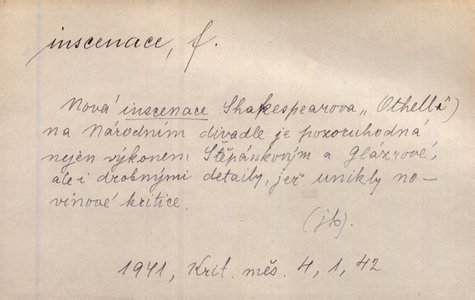 inscenace, f.
Nová inscenace Shakespearova „Othella")
na Národním divadle je pozoruhodná
nejen výkonem Štěpánkovým a Glázrové,
ale i drobnými detaily, jež unikly no-
vinové kritice.
(jk).
1941, Krit. měs. 4, 1, 42